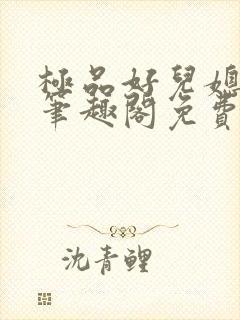 極品好兒媳
筆趣閣免費
沈青鯉